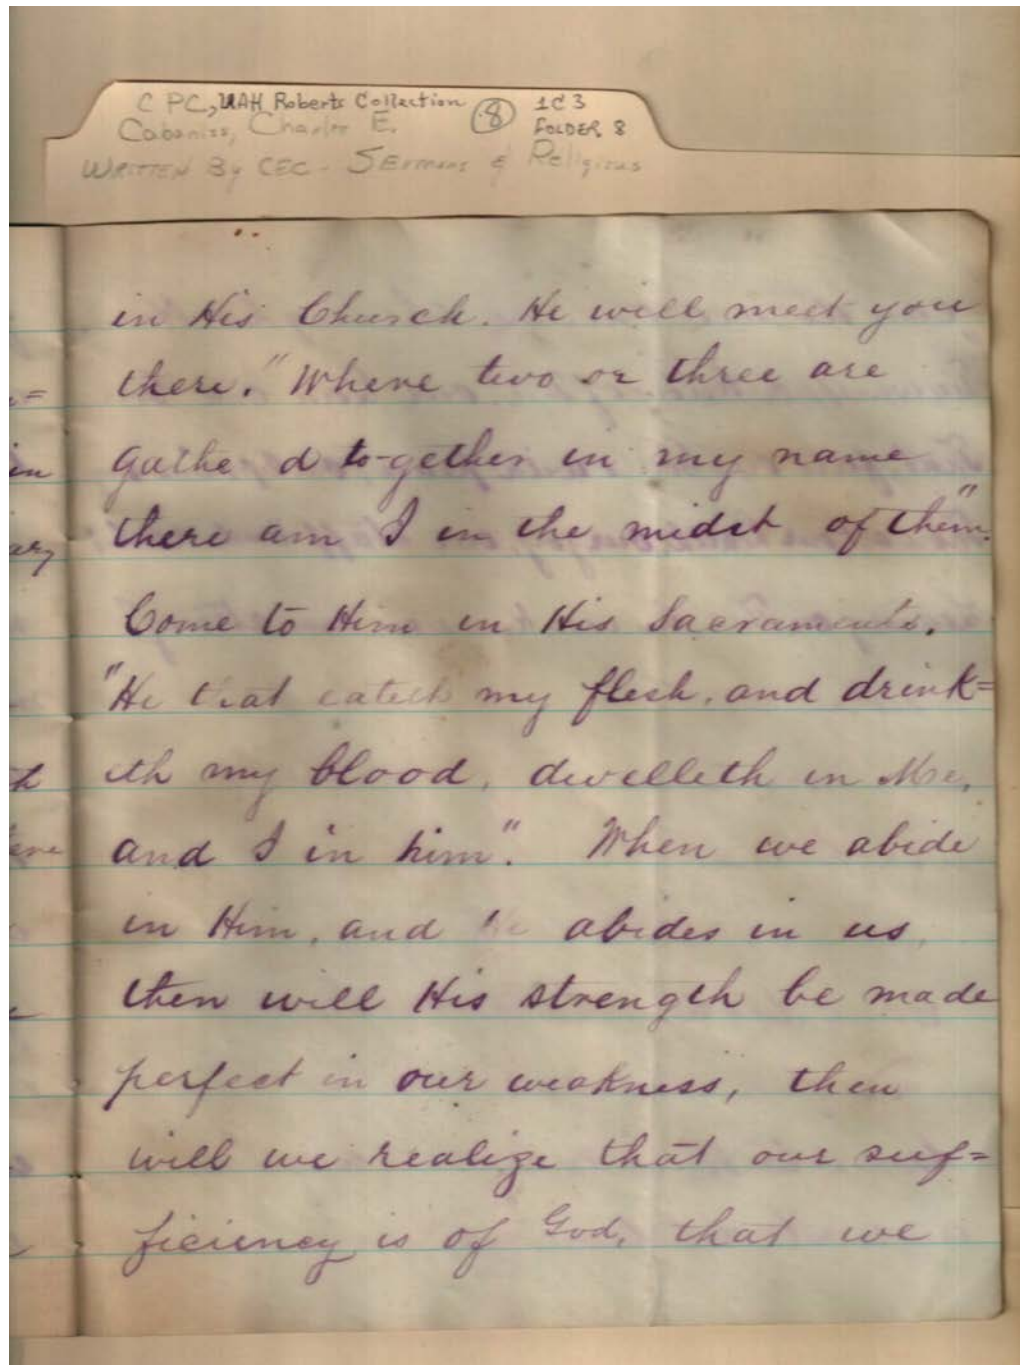 C PC, UAH Roberts Collection (8) 1C3
Cabaniss, Charles E. FOLDER 8
WRITTEN By CEC - SERMONS & Religious
in His Church. He will meet you
there. "Where two or three are
gathe d to-gether in my name
there am I in the midst of them".
Come to Him in His Sacraments.
"He that eateth my flesh, and drink=
eth my blood, dwelleth in Me,
and I in him". When we abide
in Him, and he abides in us,
then will His strength be made
perfect in our weakness, then
will we realize that our suf=
ficiency is of God, that we